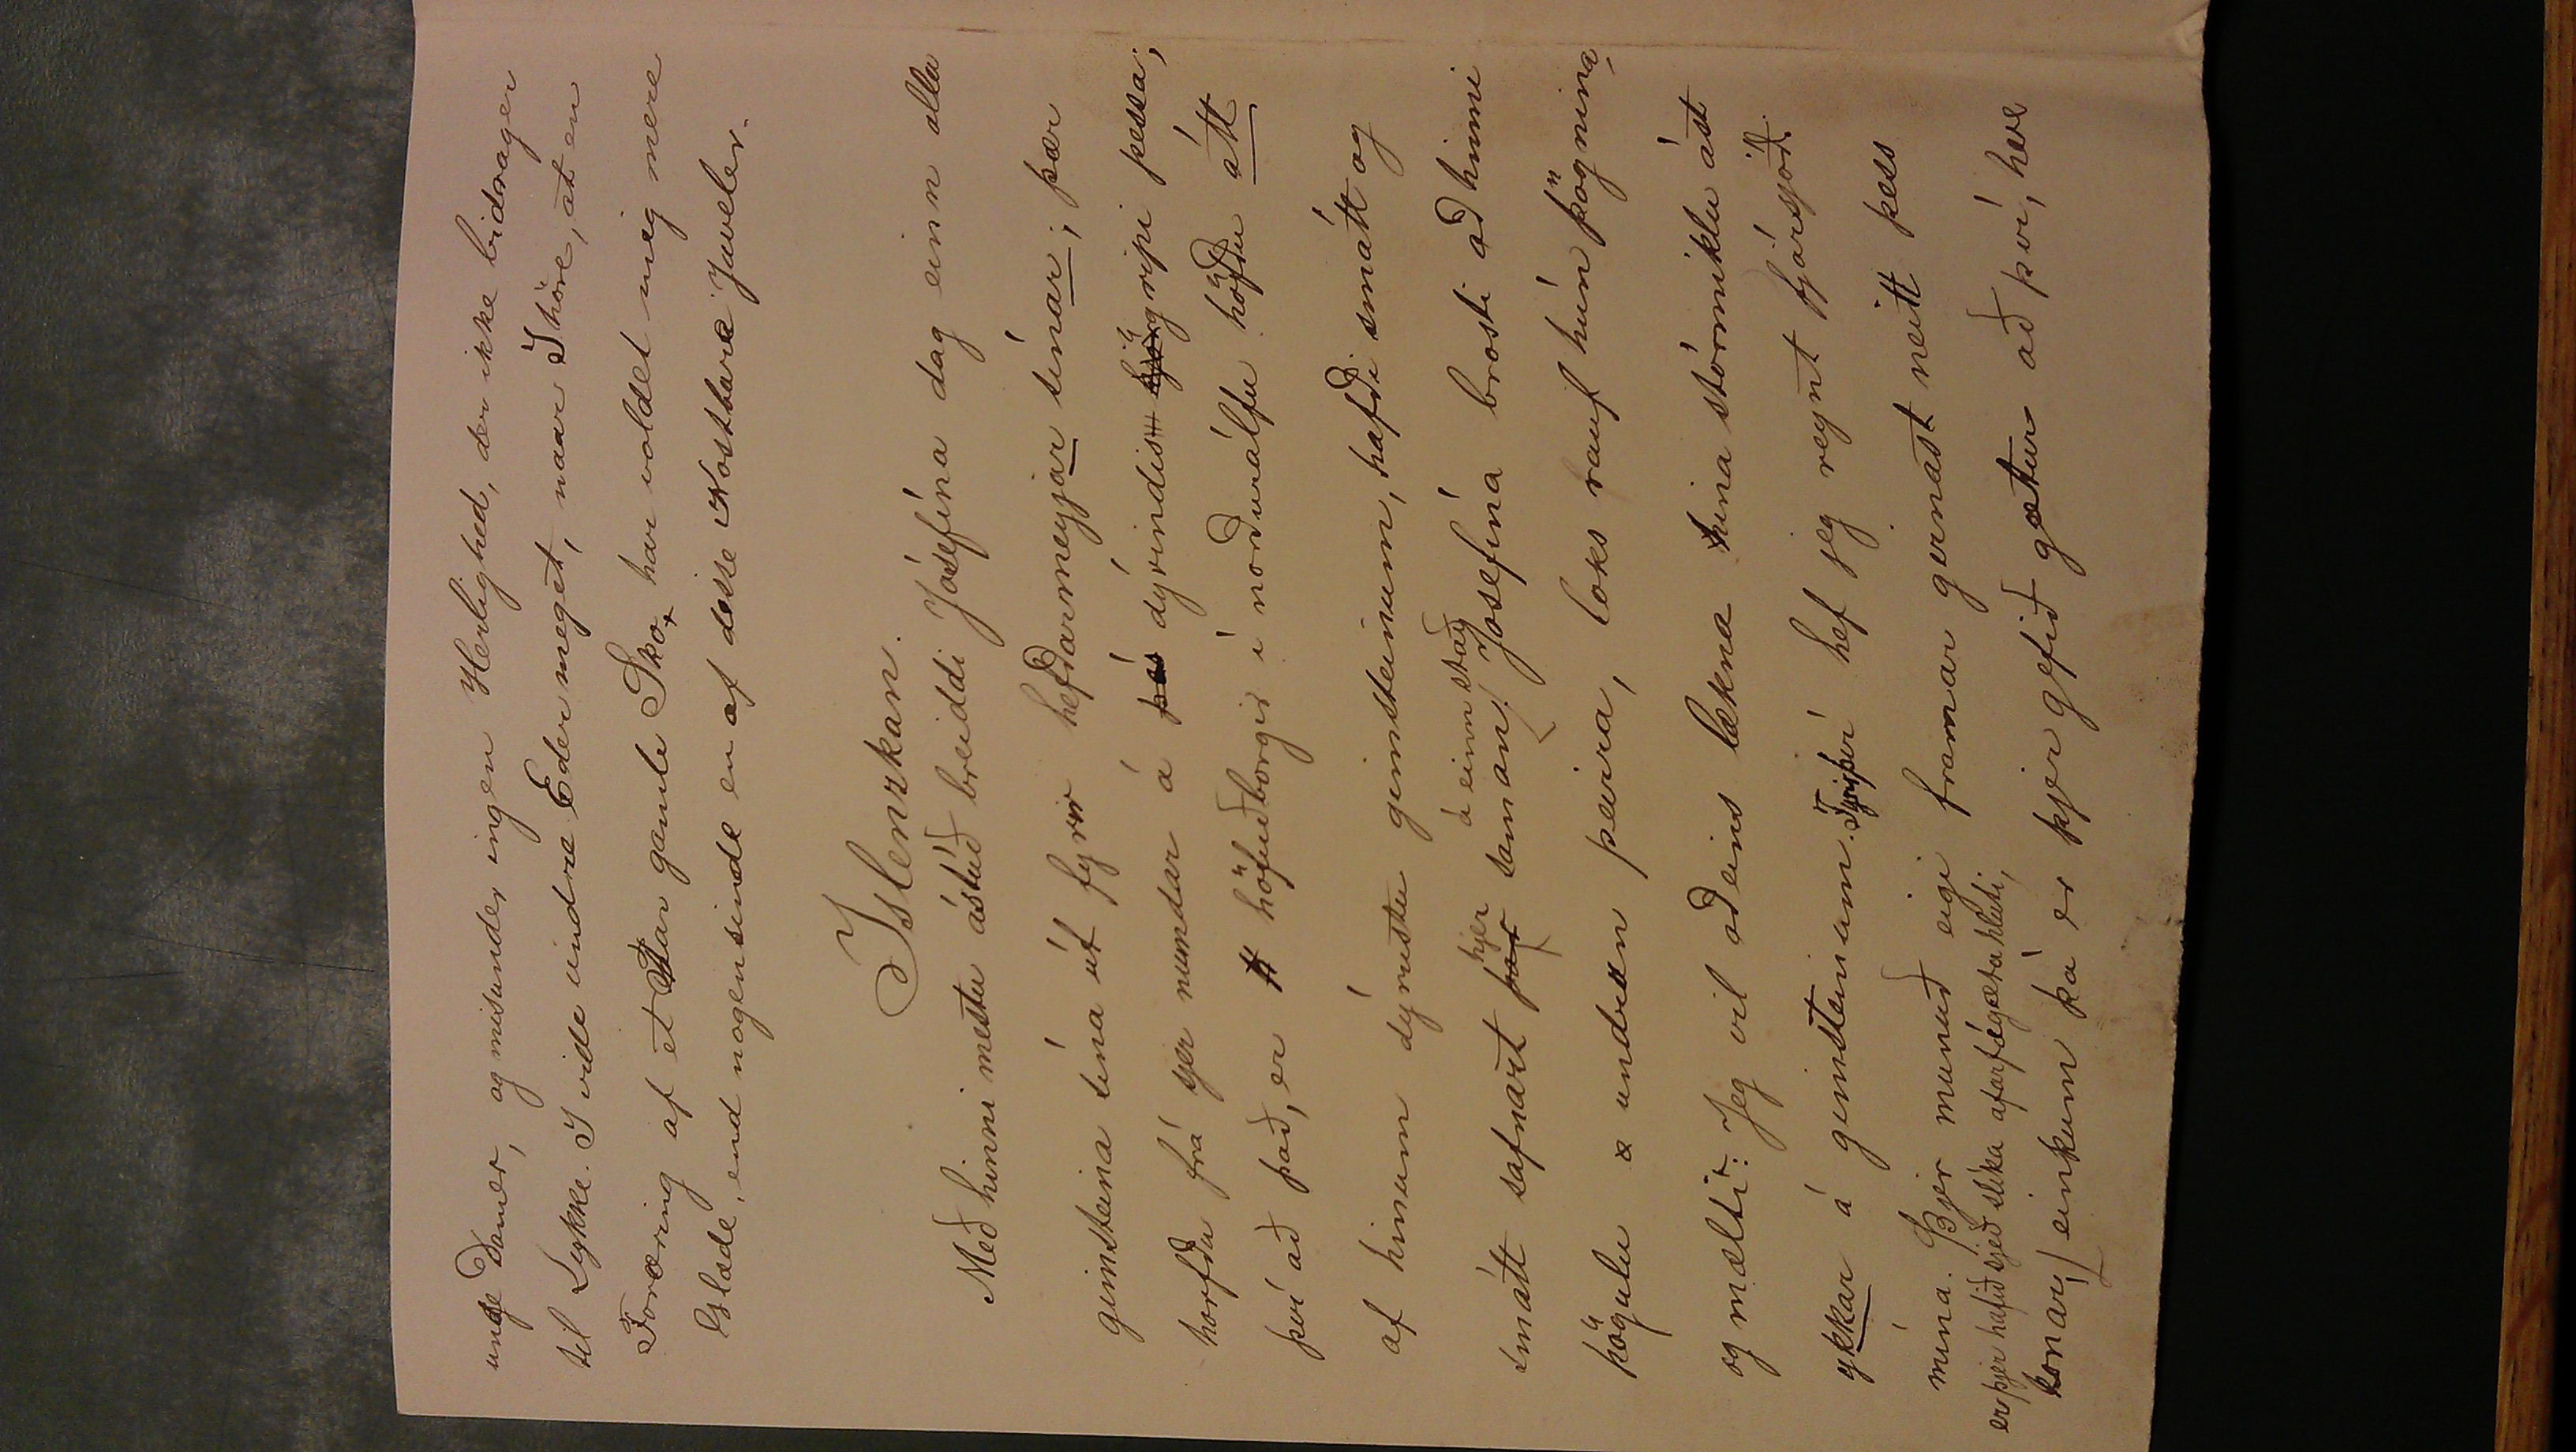 unge Damer, og misunder ingen Herlighed, der ikke bidrager
til Lykke. I vide undre Eder meget, naar I høre, at en
Foræring af et Par gamle Sko, har voldet mig mere
Glæde, end nogensinde en af disse Kostbare Juveler.
Islenzkan.
Með hinni mestu ástúð breiddi Jósefína dag einn alla
gimsteina sína út fyrir hefðarmeyjar sínar; þær
horfðu frá sjer numdar á þá dýrindis gripi þessa;
því að það, er höfuðborgir í norðurálfu höfðu átt
af hinum dýrustu gimsteinum, hafði smátt og
smátt safnazt þar hjer saman á einn stað. Josefína brosti að hinni
þögulu undrun þeirra, loks rauf hún þögnina,
og mælti: Jeg vil aðeins lækna hina stórmiklu ást
ykkar á gimsteinum. Fyrir þér hef jeg reynt fjársjóð
mína. Þjer munuð eigi framar girnast neitt þess
er þjer hafið sjeð slíka afarfégæta hluti,
konar, einkum þá er þjer gefið gætur að því, hve